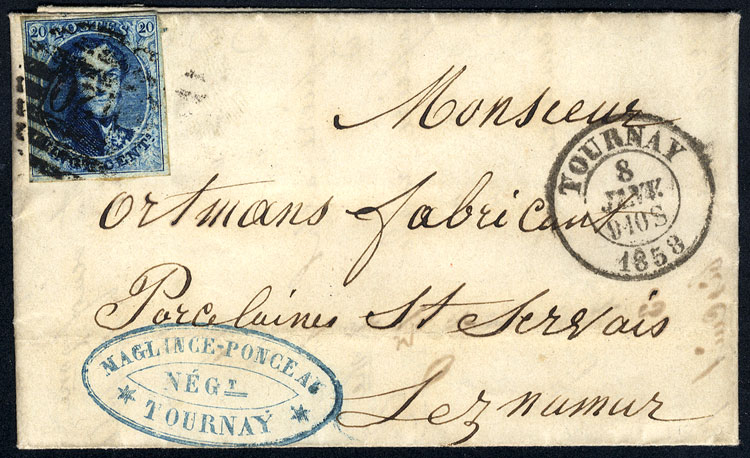 20 POSTES 20
CENT.
Monsieur
TOURNAY
8
JANV.
1858
ortmans fabricant
Porcelaines St Servais
Lez namur
MAGLINCE-PONCEAU
NÉGt
TOURNAY